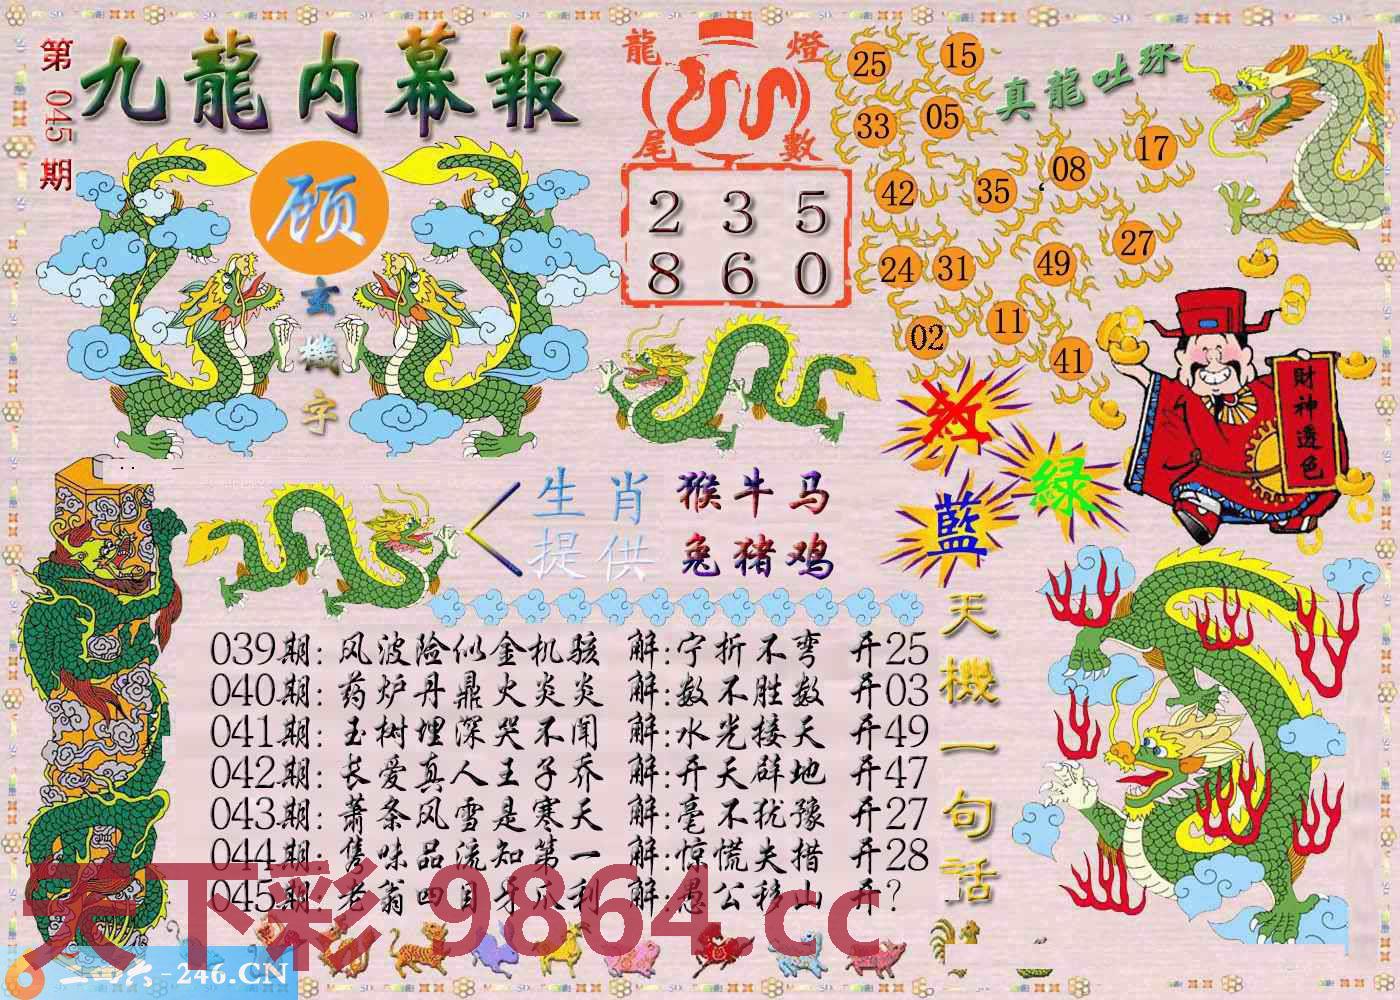 第045期
九龍内幕報
顾
玄機字
龍燈
尾數
2 3 5
8 6 0
25
15
33
05
42
35
08
17
24
31
49
27
02
11
41
真龍吐珠
財神透色
红
绿
藍
生肖 猴牛马
提供 兔猪鸡
天機一句話
039期: 风波险似金机骇 解:宁折不弯 开25
040期: 药炉丹鼎火炎炎 解:数不胜数 开03
041期: 玉树埋深哭不闻 解:水光接天 开49
042期: 长爱真人王子乔 解:开天辟地 开47
043期: 萧条风雪是寒天 解:毫不犹豫 开27
044期: 隽味品流知第一 解:惊慌失措 开28
045期: 老翁四目牙爪利 解:愚公移山 开?
天下彩 9864.cc
二四六-246.CN